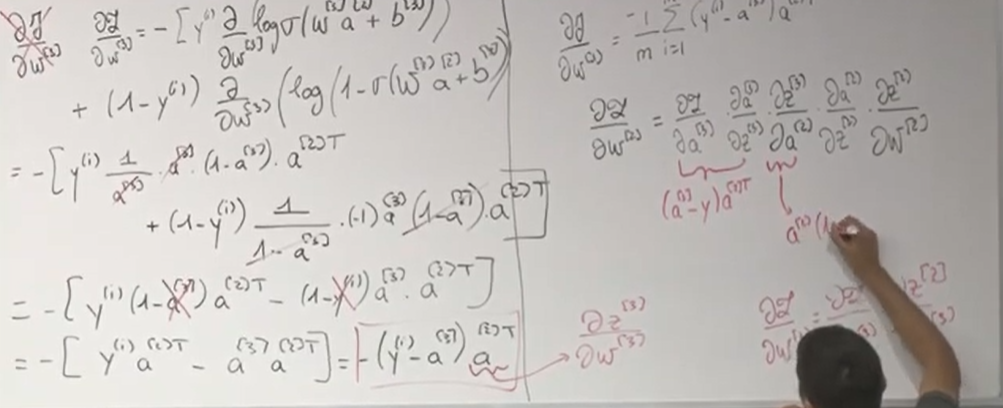 ∂J/∂w^[3] ∂ℒ/∂w^[3] = -[y^(i) ∂/∂w^[3] log σ(w^[3] a^[2] + b^[3])
+ (1-y^(i)) ∂/∂w^[3] (log(1-σ(w^[3] a^[2] + b^[3])
= -[y^(i) 1/a^[3] · a^[3] · (1-a^[3]) · a^[2]T
+ (1-y^(i)) 1/(1-a^[3]) · (-1) a^[3] (1-a^[3]) · a^[2]T]
= -[y^(i) (1-a^[3]) a^[2]T - (1-y^(i)) a^[3] · a^[2]T]
= -[y^(i) a^[2]T - a^[3] a^[2]T] = -(y^(i) - a^[3]) a^[2]T
∂z^[3]/∂w^[3]
∂J/∂w^[3] = -1/m Σ i=1 (y^(i) - a^[3]) a
∂ℒ/∂w^[2] = ∂ℒ/∂a^[3] · ∂a^[3]/∂z^[3] · ∂z^[3]/∂a^[2] · ∂a^[2]/∂z^[2] · ∂z^[2]/∂w^[2]
(a^[3] - y) a^[2]T
a^[2] (1
∂ℒ/∂w =